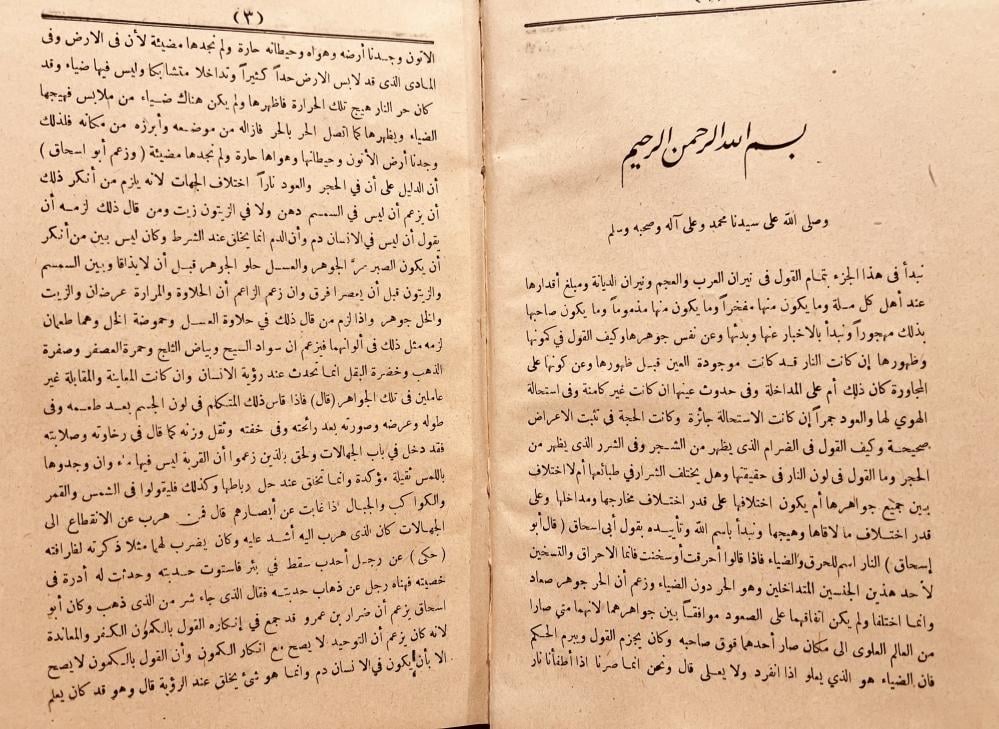 بسم الله الرحمن الرحيم
وصلى الله على سيدنا محمد وعلى آله وصحبه وسلم
نبدأ فى هذا الجزء بتمام القول فى نيران العرب والعجم ونيران الديانة ومبلغ أقدارها
عند أهل كل ملة وما يكون منها مفخراً وما يكون منها مذموماً وما يكون صاحبها
بذلك مهجوراً ونبدأ بالاخبار عنها وبدئها وعن نفس جوهرها وكيف القول فى كمونها
وظهورها إن كانت النار قد كانت موجودة العين قبل ظهورها وعن كونها على
المجاورة كان ذلك أم على المداخلة وفى حدوث عينها ان كانت غير كامنة وفى استحالة
الهوي لها والعود جمراً إن كانت الاستحالة جائزة وكانت الحجة فى تثبت الاعراض
صحيحة وكيف القول فى الضرام الذى يظهر من الشجر وفى الشرر الذى يظهر من
الحجر وما القول فى لون النار فى حقيقتها وهل يختلف الشرار في طبائعها أم لا اختلاف
بين جميع جواهرها أم يكون اختلافها على قدر اختلاف مخارجها ومداخلها وعلى
قدر اختلاف ما لاقاها وهيجها ونبدأ باسم الله وتأييده بقول أبى اسحاق (قال أبو
إسحاق) النار اسم للحرق والضياء فاذا قالوا أحرقت أو سخنت فانما الاحراق والتسخين
لاحد هذين الجنسين المتداخلين وهو الحر دون الضياء وزعم أن الحر جوهر صعاد
وانما اختلفا ولم يكن اتفاقهما على الصعود موافقاً بين جواهرهما لانهما متي صارا
من العالم العلوى الى مكان صار أحدهما فوق صاحبه وكان يجزم القول ويبرم الحكم
فان الضياء هو الذي يعلو اذا انفرد ولا يعلى قال ونحن انما صرنا اذا أطفأنا نار
(٣)
الاتون وجدنا أرضه وهواه وحيطانه حارة ولم نجدها مضيئة لأن فى الارض وفى
المادى الذى قد لابس الارض حداً كثيراً وتداخلا متشابكا وليس فيها ضياء وقد
كان حر النار هيج تلك الحرارة فاظهرها ولم يكن هناك ضياء من ملابس فهيجها
الضياء ويظهرها كما اتصل الحر بالحر فازاله من موضعه وأبرزه من مكانه فلذلك
وجدنا أرض الأتون وحيطانها وهواها حارة ولم نجدها مضيئة (وزعم أبو اسحاق)
أن الدليل على أن في الحجر والعود ناراً اختلاف الجهات لانه يلزم من أنكر ذلك
أن يزعم أن ليس فى السمسم دهن ولا فى الزيتون زيت ومن قال ذلك لزمه أن
يقول أن ليس فى الانسان دم وأن الدم انما يخلق عند الشرط وكان ليس بين من أنكر
أن يكون الصبر مرَّ الجوهر والعسل حلو الجوهر قبل أن لا يذاقا وبين السمسم
والزيتون قبل أن يعصرا فرق وان زعم الزاعم أن الحلاوة والمرارة عرضان والزيت
والخل جوهر واذا لزم من قال ذلك فى حلاوة العسل وحموضة الخل وهما طعمان
لزمه مثل ذلك فى ألوانهما فيزعم ان سواد السبج وبياض الثلج وحمرة العصفر وصفرة
الذهب وخضرة البقل انما تحدث عند رؤية الانسان وان كانت المعاينة والمقابلة غير
عاملين فى تلك الجواهر (قال) فاذا قاس ذلك المتكلم في لون الجسم بعيد طعمه وفى
طوله وعرضه وصورته بعد رائحته وفى خفته وثقل وزنه كما قال فى رخاوته وصلابته
فقد دخل فى باب الجهالات ولحق بالذين زعموا أن القربة ليس فيها ماء وان وجدوها
باللمس ثقيلة مؤكدة وانما تخلق عند حل رباطها وكذلك فليقولوا فى الشمس والقمر
والكواكب والجبال اذا غابت عن أبصارهم قال فمن هرب عن الانقطاع الى
الجهالات كان الذى هرب اليه أشد عليه وكان يضرب لهما مثلا ذكرته لظرافته
(حكى) عن رجل أحدب سقط فى بئر فاستوت حدبته وحدثت له أدرة فى
خصيته فهناه رجل عن ذهاب حدبته فقال الذى جاء شر من الذى ذهب وكان أبو
اسحاق يزعم أن ضرار بن عمرو قد جمع في إنكاره القول بالكمون الكفر والمعاندة
لانه كان يزعم أن التوحيد لا يصح مع انكار الكمون وأن القول بالكمون لا يصح
الا بأن يكون في الانسان دم وانما هو شئ يخلق عند الرؤية قال وهو قد كان يعلم